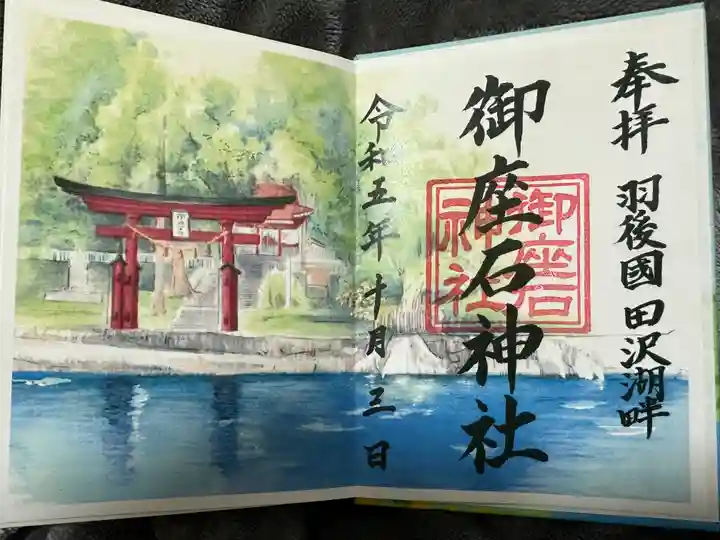 奉拝
羽後國田沢湖畔
御座石神社
御座石
神社
令和五年十月三日